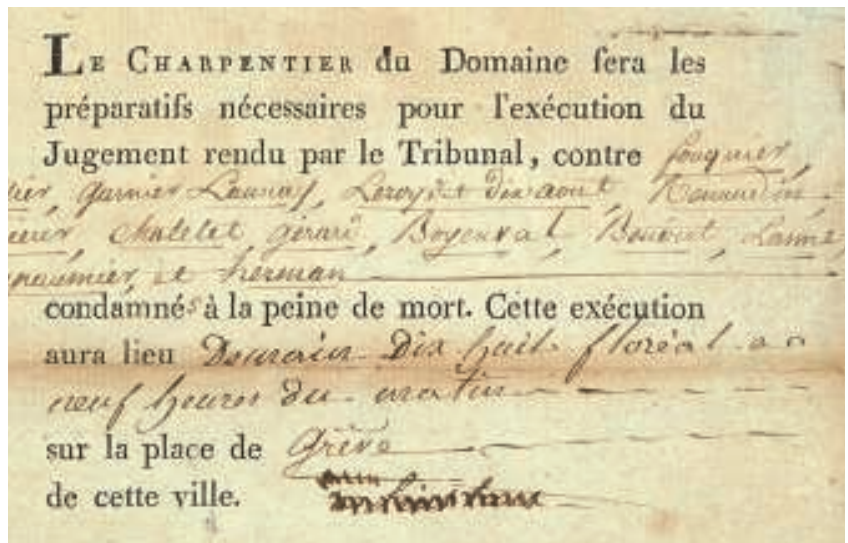 LE CHARPENTIER du Domaine sera les
préparatifs nécessaires pour l'exécution du
Jugement rendu par le Tribunal, contre fouquier,
garnier Launay, Leroy dit dix aout, Renaudin
chatelet, gérard, Boyenval, Benoist, Lanne,
naumier, et herman
condamnés à la peine de mort. Cette exécution
aura lieu Demain Dix huit floréal a
neuf heures du matin
sur la place de Grève
de cette ville.